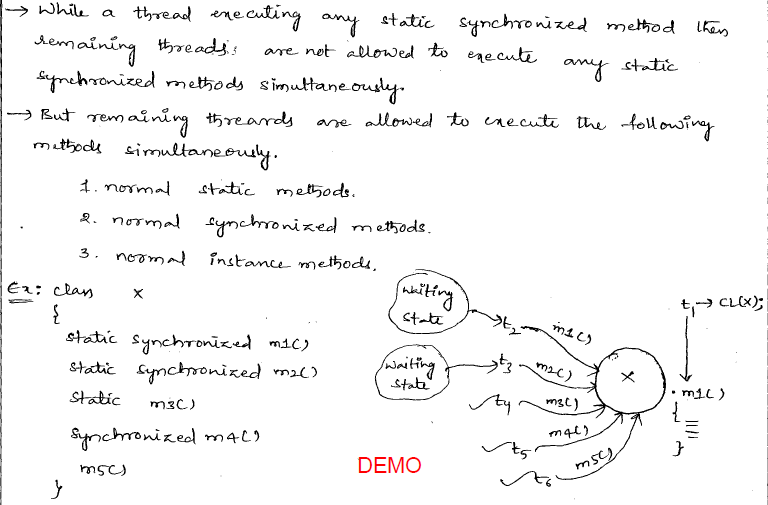 → While a thread executing any static synchronized method then
remaining threads are not allowed to execute any static
synchronized methods simultaneously.
→ But remaining threards are allowed to execute the following
methods simultaneously.
1. normal static methods.
2. normal synchronized methods.
3. normal instance methods.
Ex: class X
{
static synchronized m1()
static synchronized m2()
static m3()
synchronized m4()
m5()
}
waiting
state
t2 m1()
waiting
state
t3 m2()
t4 m3()
t5 m4()
t6 m5()
X
t1 → CL(X);
m1()
{
}
DEMO